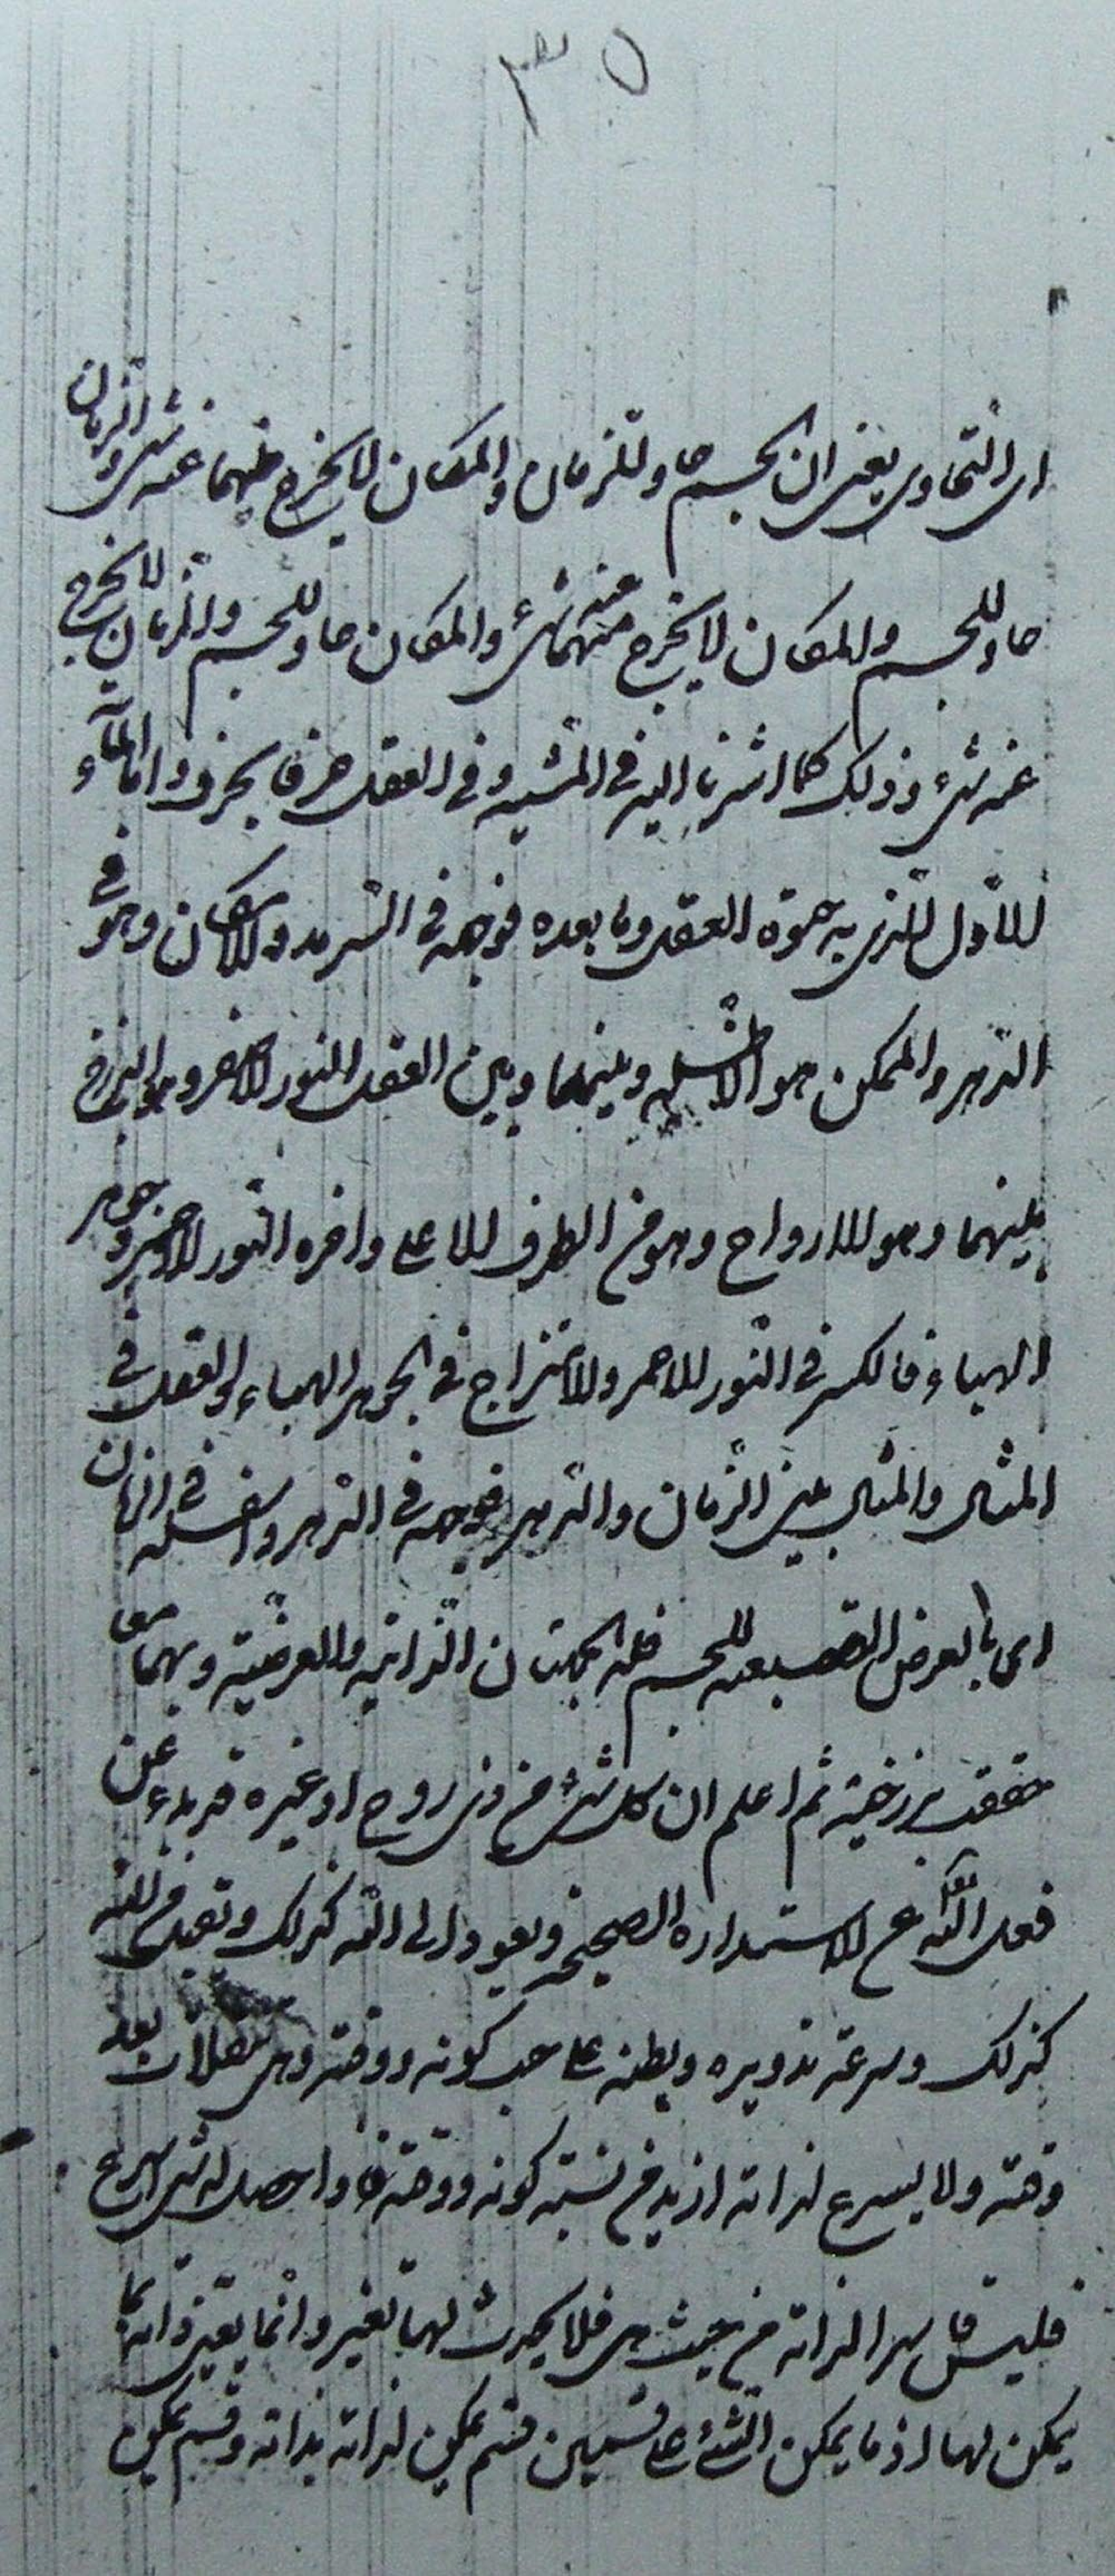 ٣٥
اى التحاوى يعنى ان الجسم حاو للزمان والمكان لا يخرج منهما عنه شىء والزمان
حاو للجسم والمكان لا يخرج عنه منهما شىء والمكان حاو للجسم والزمان لا يخرج
عنه شىء وذلك كما اشرنا اليه فى المشية وفى العقل حرفا بحرف واما الماء
الاول الذى به حيوة العقل وما بعده فوجهه فى السرمد والامكان وهو فى
الدهر والممكن هو الاسفله وبينهما وبين العقل النور الاصفر وهو البرزخ
بينهما وهو الارواح وهو من الطرف الاعلى واخره النور الاحمر وجوهر
الهباء فالكسر فى النور الاحمر والامتزاج فى الجوهر الهباء والعقد فى
المثال والمثال بين الزمان والدهر فوجهه فى الدهر واسفله فى الزمان
اى بالعرض التبعية للجسم فله الجهتان الذاتية والعرضية وبهما معا
حققت برزخية ثم اعلم ان كل شىء من ذى روح او غيره قد بدء عن
فعل الله تع على الاستدارة الصحيحة ويعود الى الله كذلك
كذلك وسرعة تدويره وبطئه على حسب كونه ووقته
وقته ولا يسرع لذاته ازيد من نسبة كونه ووقته فاذا حصل له شىء اسرع
فليس قاسرا لذاته من حيث هى فلا يحدث لها تغير وانما تغير ذاته بما
يمكن لها اذ ما يمكن الشىء على قسمين قسم يمكن لذاته بذاته وقسم يمكن